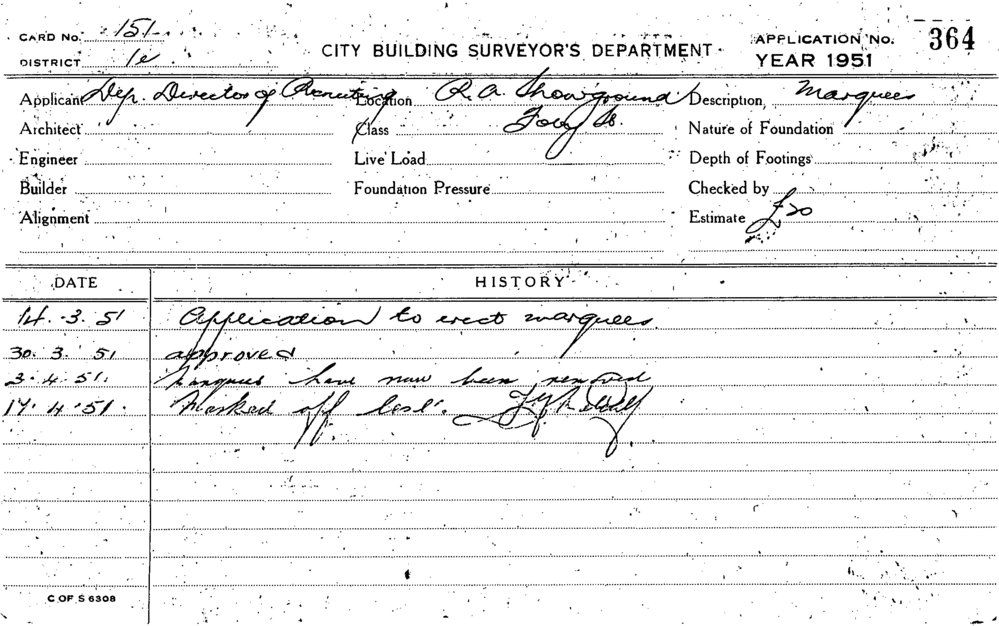 CARD No. 151
DISTRICT 1e
CITY BUILDING SURVEYOR'S DEPARTMENT
APPLICATION No. 364
YEAR 1951
Applicant Dep. Director of Recruiting Location R.A. Showground Description Marquees
Architect Class Nature of Foundation
Engineer Live Load Depth of Footings
Builder Foundation Pressure Checked by
Alignment Estimate £20
DATE HISTORY
14.3.51 Application to erect marquees
30.3.51 approved
3.4.51. Marquees have now been removed
17.4.51. Marked off list.
C OF S 6308